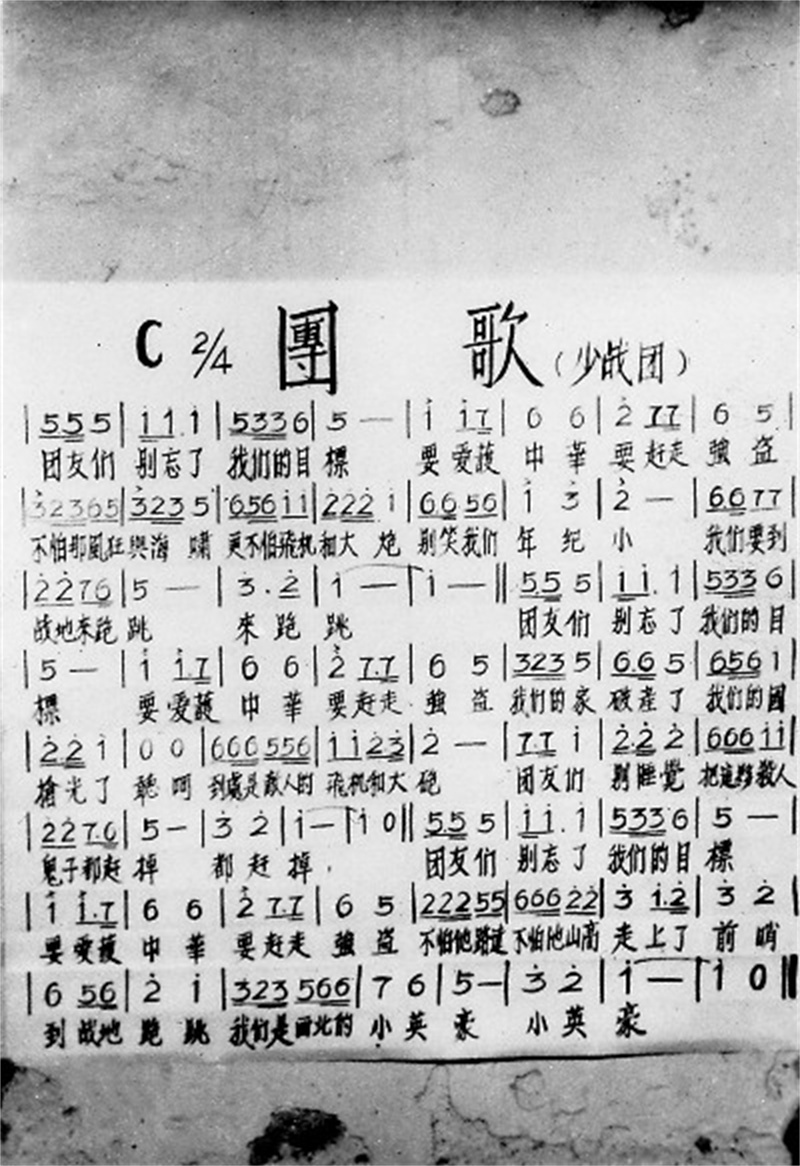 C 2/4 團 歌 (少战团)
|555|i1.1|5336|5—|i i17|6 6|2 77|6 5|
团友們 别忘了 我们的目標 要爱護 中華 要赶走 強盗
|32365|3235|656ii|222i|6656|i 3|2—|6677|
不怕那風狂與海嘯 更不怕飛机和大炮 别笑我们 年纪小 我们要到
|2276|5—|3.2|i—|i—||555|i1.1|5336|
战地来跑跳 來跑跳 团友们 别忘了 我们的目
|5—|i i.7|6 6|2 7.7|6 5|3235|6.65|6561|
標 要爱護 中華 要赶走 強盗 我们的家 破產了 我们的國
|221|0 0|666556|1123|2—|7.7i|2.22|666ii|
搶光了 聽呵 到處是敵人的 飛机和大砲 团友们 别睡觉 把這夥殺人
|227.6|5—|3 2|i—|i 0||5.55|i1.1|5336|5—|
鬼子都赶掉 都赶掉. 团友们 别忘了 我们的目標
|i i.7|6 6|2 7.7|6 5|22255|66622|3 1.2|3 2|
要爱護 中華 要赶走 強盗 不怕他路遠 不怕他山高 走上了 前哨
|6 56|2 i|323566|7 6|5—|3 2|i—|i 0||
到战地 跑跳 我们是西北的 小英豪 小英豪